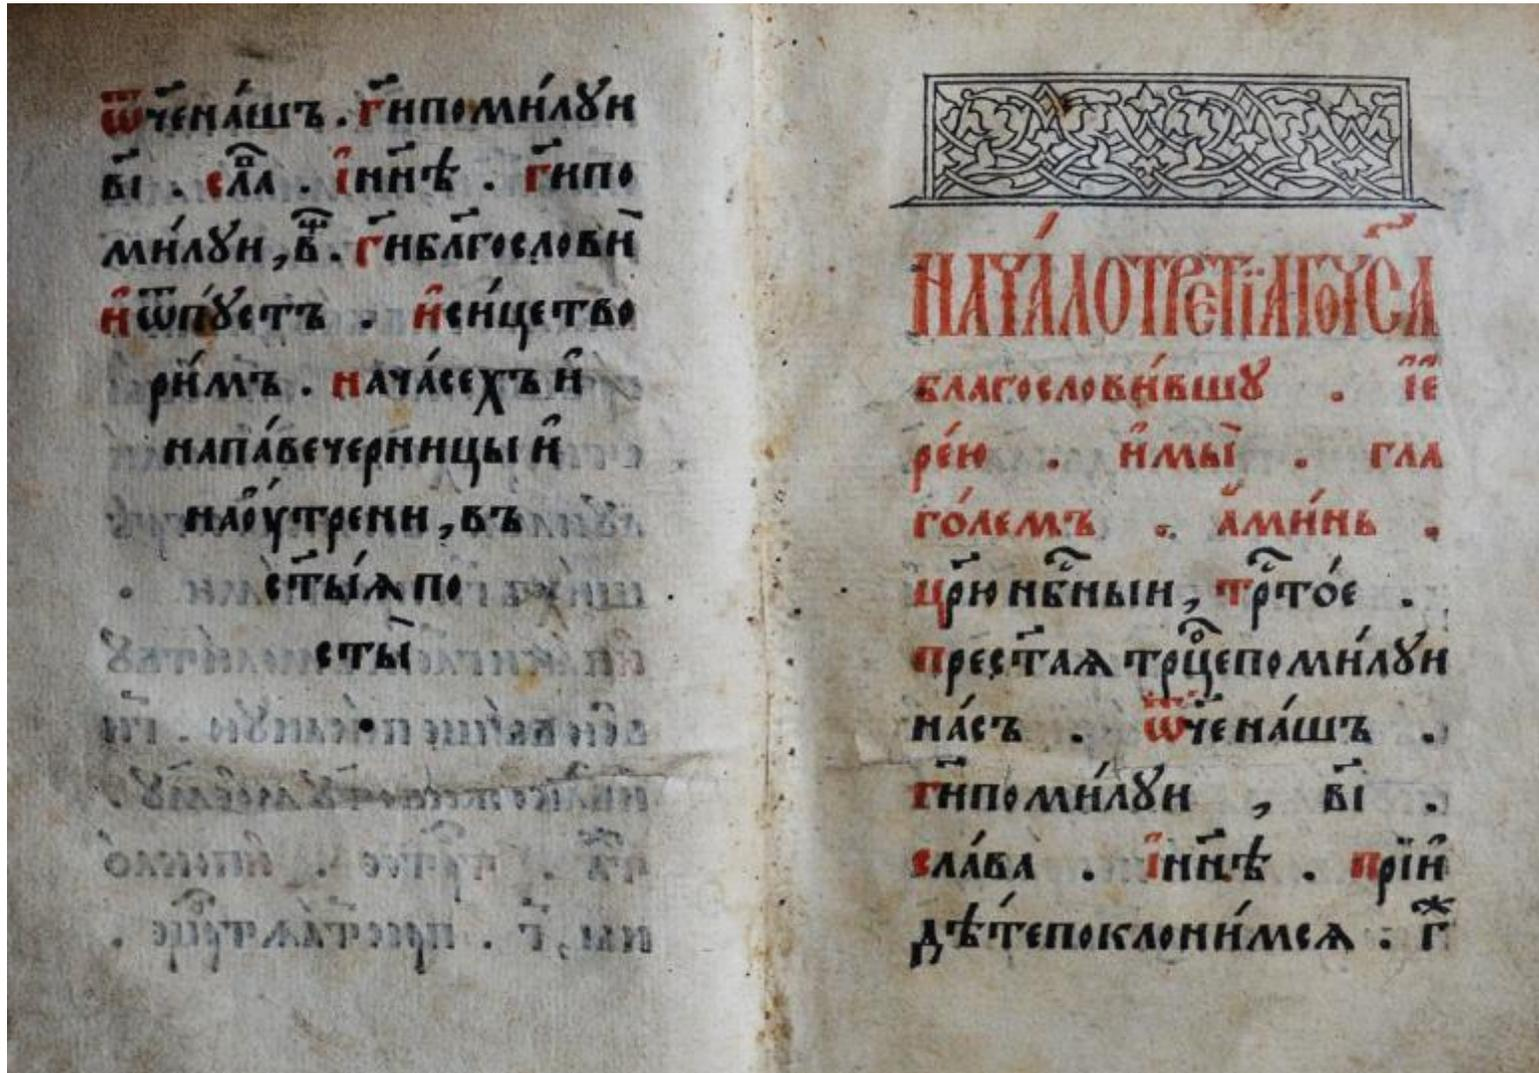 ѿч҃ена́шъ . гд҃ипоми́лꙋи
в҃і . сл҃а . і҆нн҃ѣ . гд҃ипо
ми́лꙋи , в҃ . гд҃ибл҃гослови̇
и҆ѿпꙋ́стъ . и҆си́цетво
ри́мъ . нача́сехъ и҆
напа́вечерницы и҆
наѹ҆́трени , въ
ст҃ы́ѧ по
сты̀
нача́лотретїѧгочс҃а
благослови́вшꙋ . і҆е
ре́ю . и҆мы̀ . гла
го́лемъ . а҆ми́нь .
цр҃ю нб҃ныи , тр҃то́е .
прест҃аѧ трⷪ҇цепоми́лꙋи
на́съ . ѿч҃ена́шъ .
гд҃ипоми́лꙋи , в҃і .
сла́ва . і҆нн҃ѣ . прїи҆
дѣ́тепоклони́мсѧ . г҃